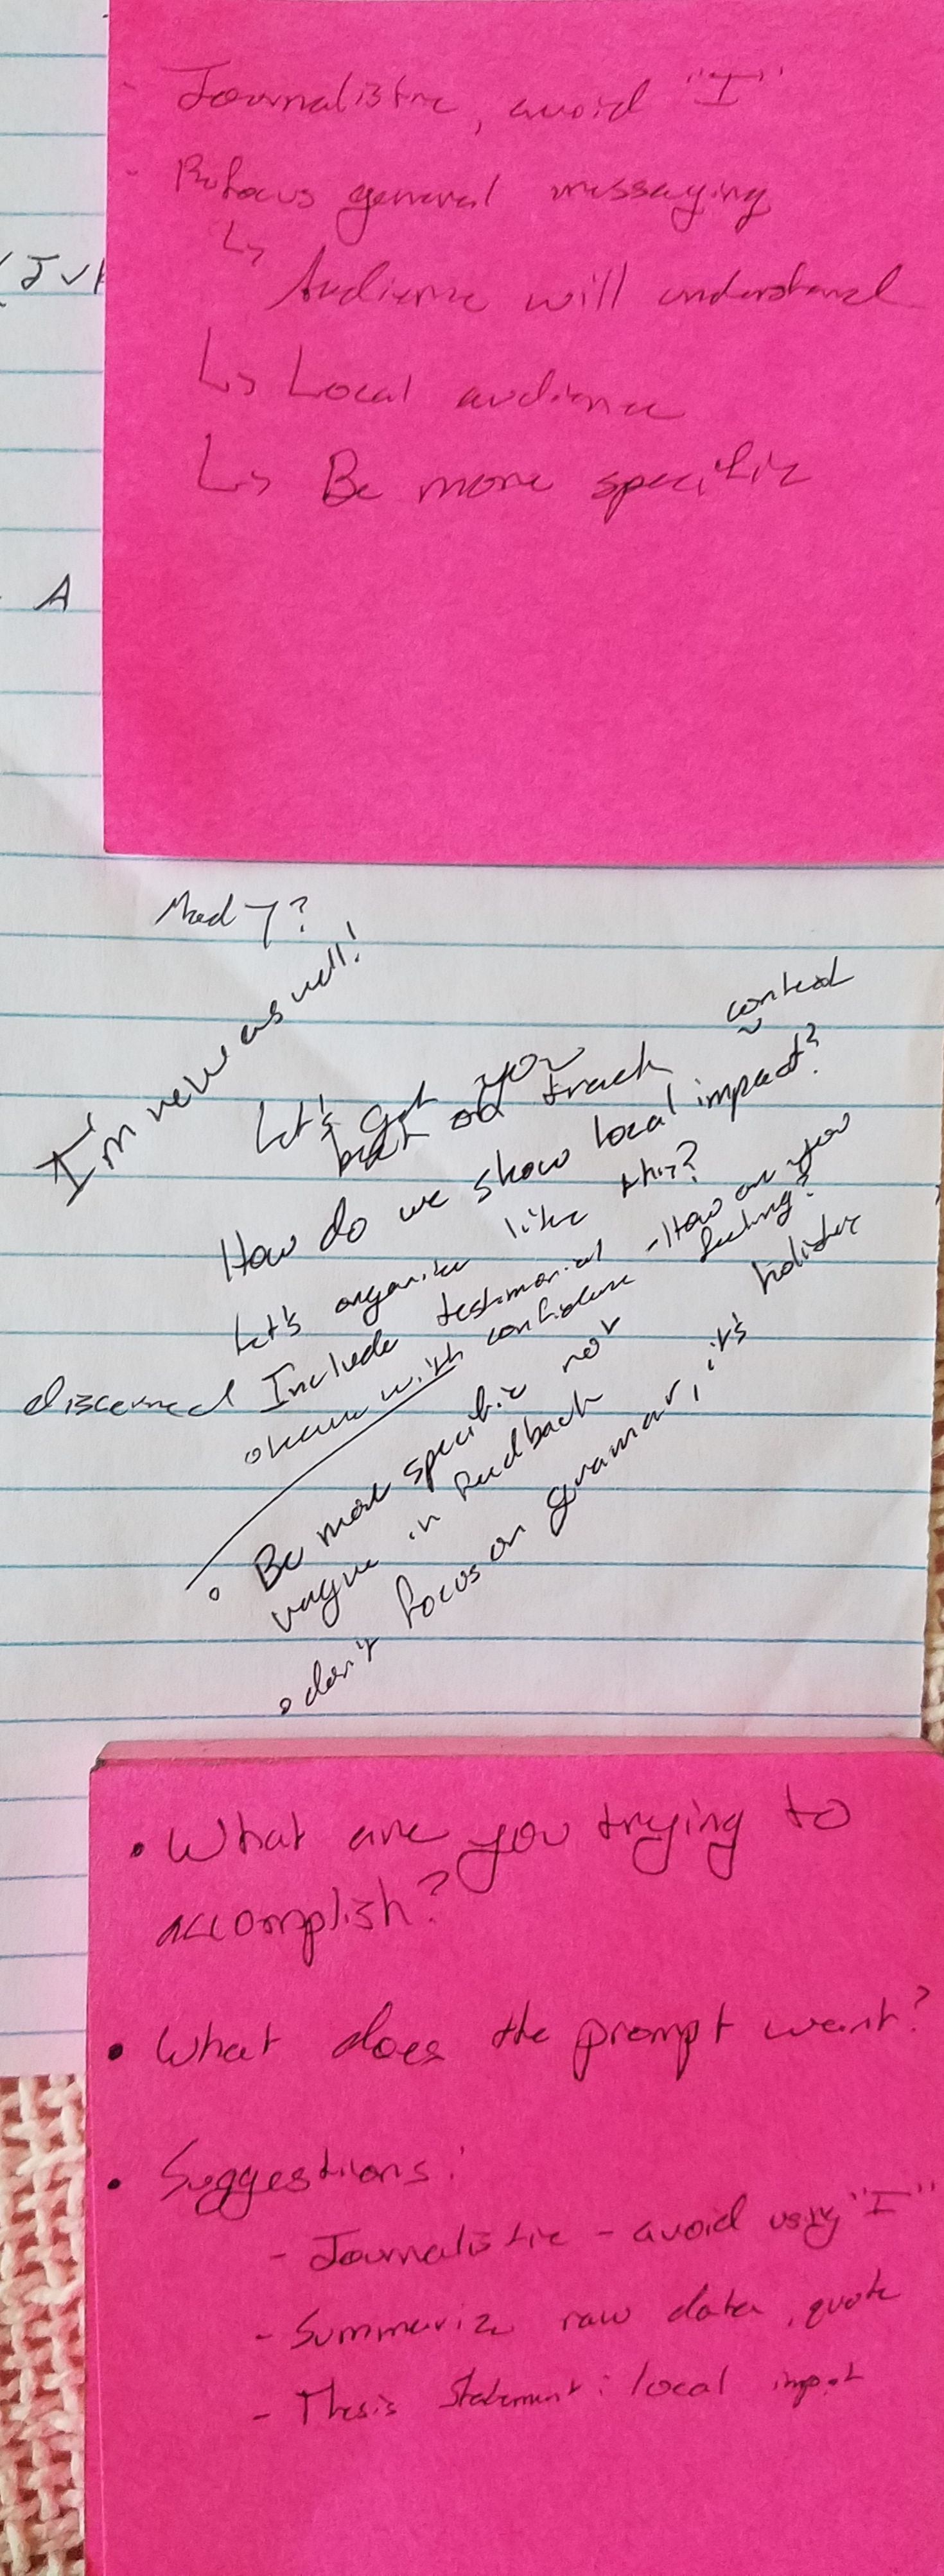 - Journalistic, avoid "I"
- Refocus general messaging
↳ Audience will understand
↳ Local audience
↳ Be more specific
A
I'm new as well!
context
Let's get you
back on track
How do we show local impact?
Let's organize like this?
discerned Include testimonial - How are you
with confidence feeling?
• Be more specific not
vague in feedback
• don't focus on grammar, it's holistic
• What are you trying to
accomplish?
• What does the prompt want?
• Suggestions:
- Journalistic - avoid using "I"
- Summarize raw data, quote
- Thesis Statement: local impact